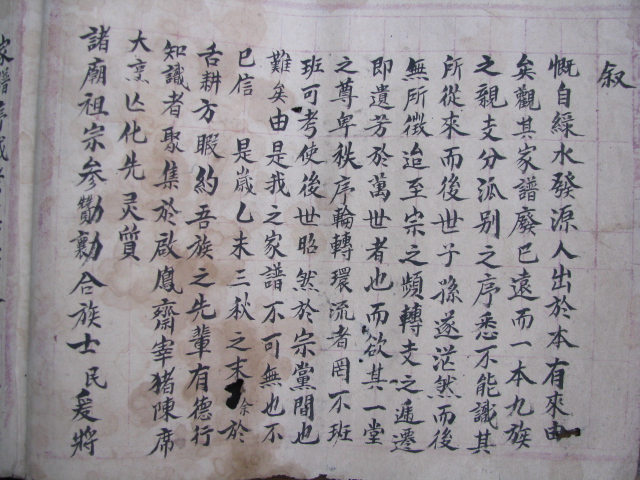 叙
慨自綵水發源人出於本有來由
矣觀其家譜廢已遠而一本九族
之親支分派别之序悉不能識其
所從來而後世子孫遂茫然而後
無所徵迨至宗之頻轉支之遞遷
即遺芳於萬世者也而欲其一堂
之尊卑秩序輪轉環流者罔不班
班可考使後世昭然於宗黨間也
難矣由是我之家譜不可無也不
已信 是嵗乙未三秋之末余於
舌耕方暇約吾族之先輩有德行
知識者聚集於啟鳳齋宰猪陳席
大烹以化先灵質
諸廟祖宗參贊勷合族士民爰將
家譜序